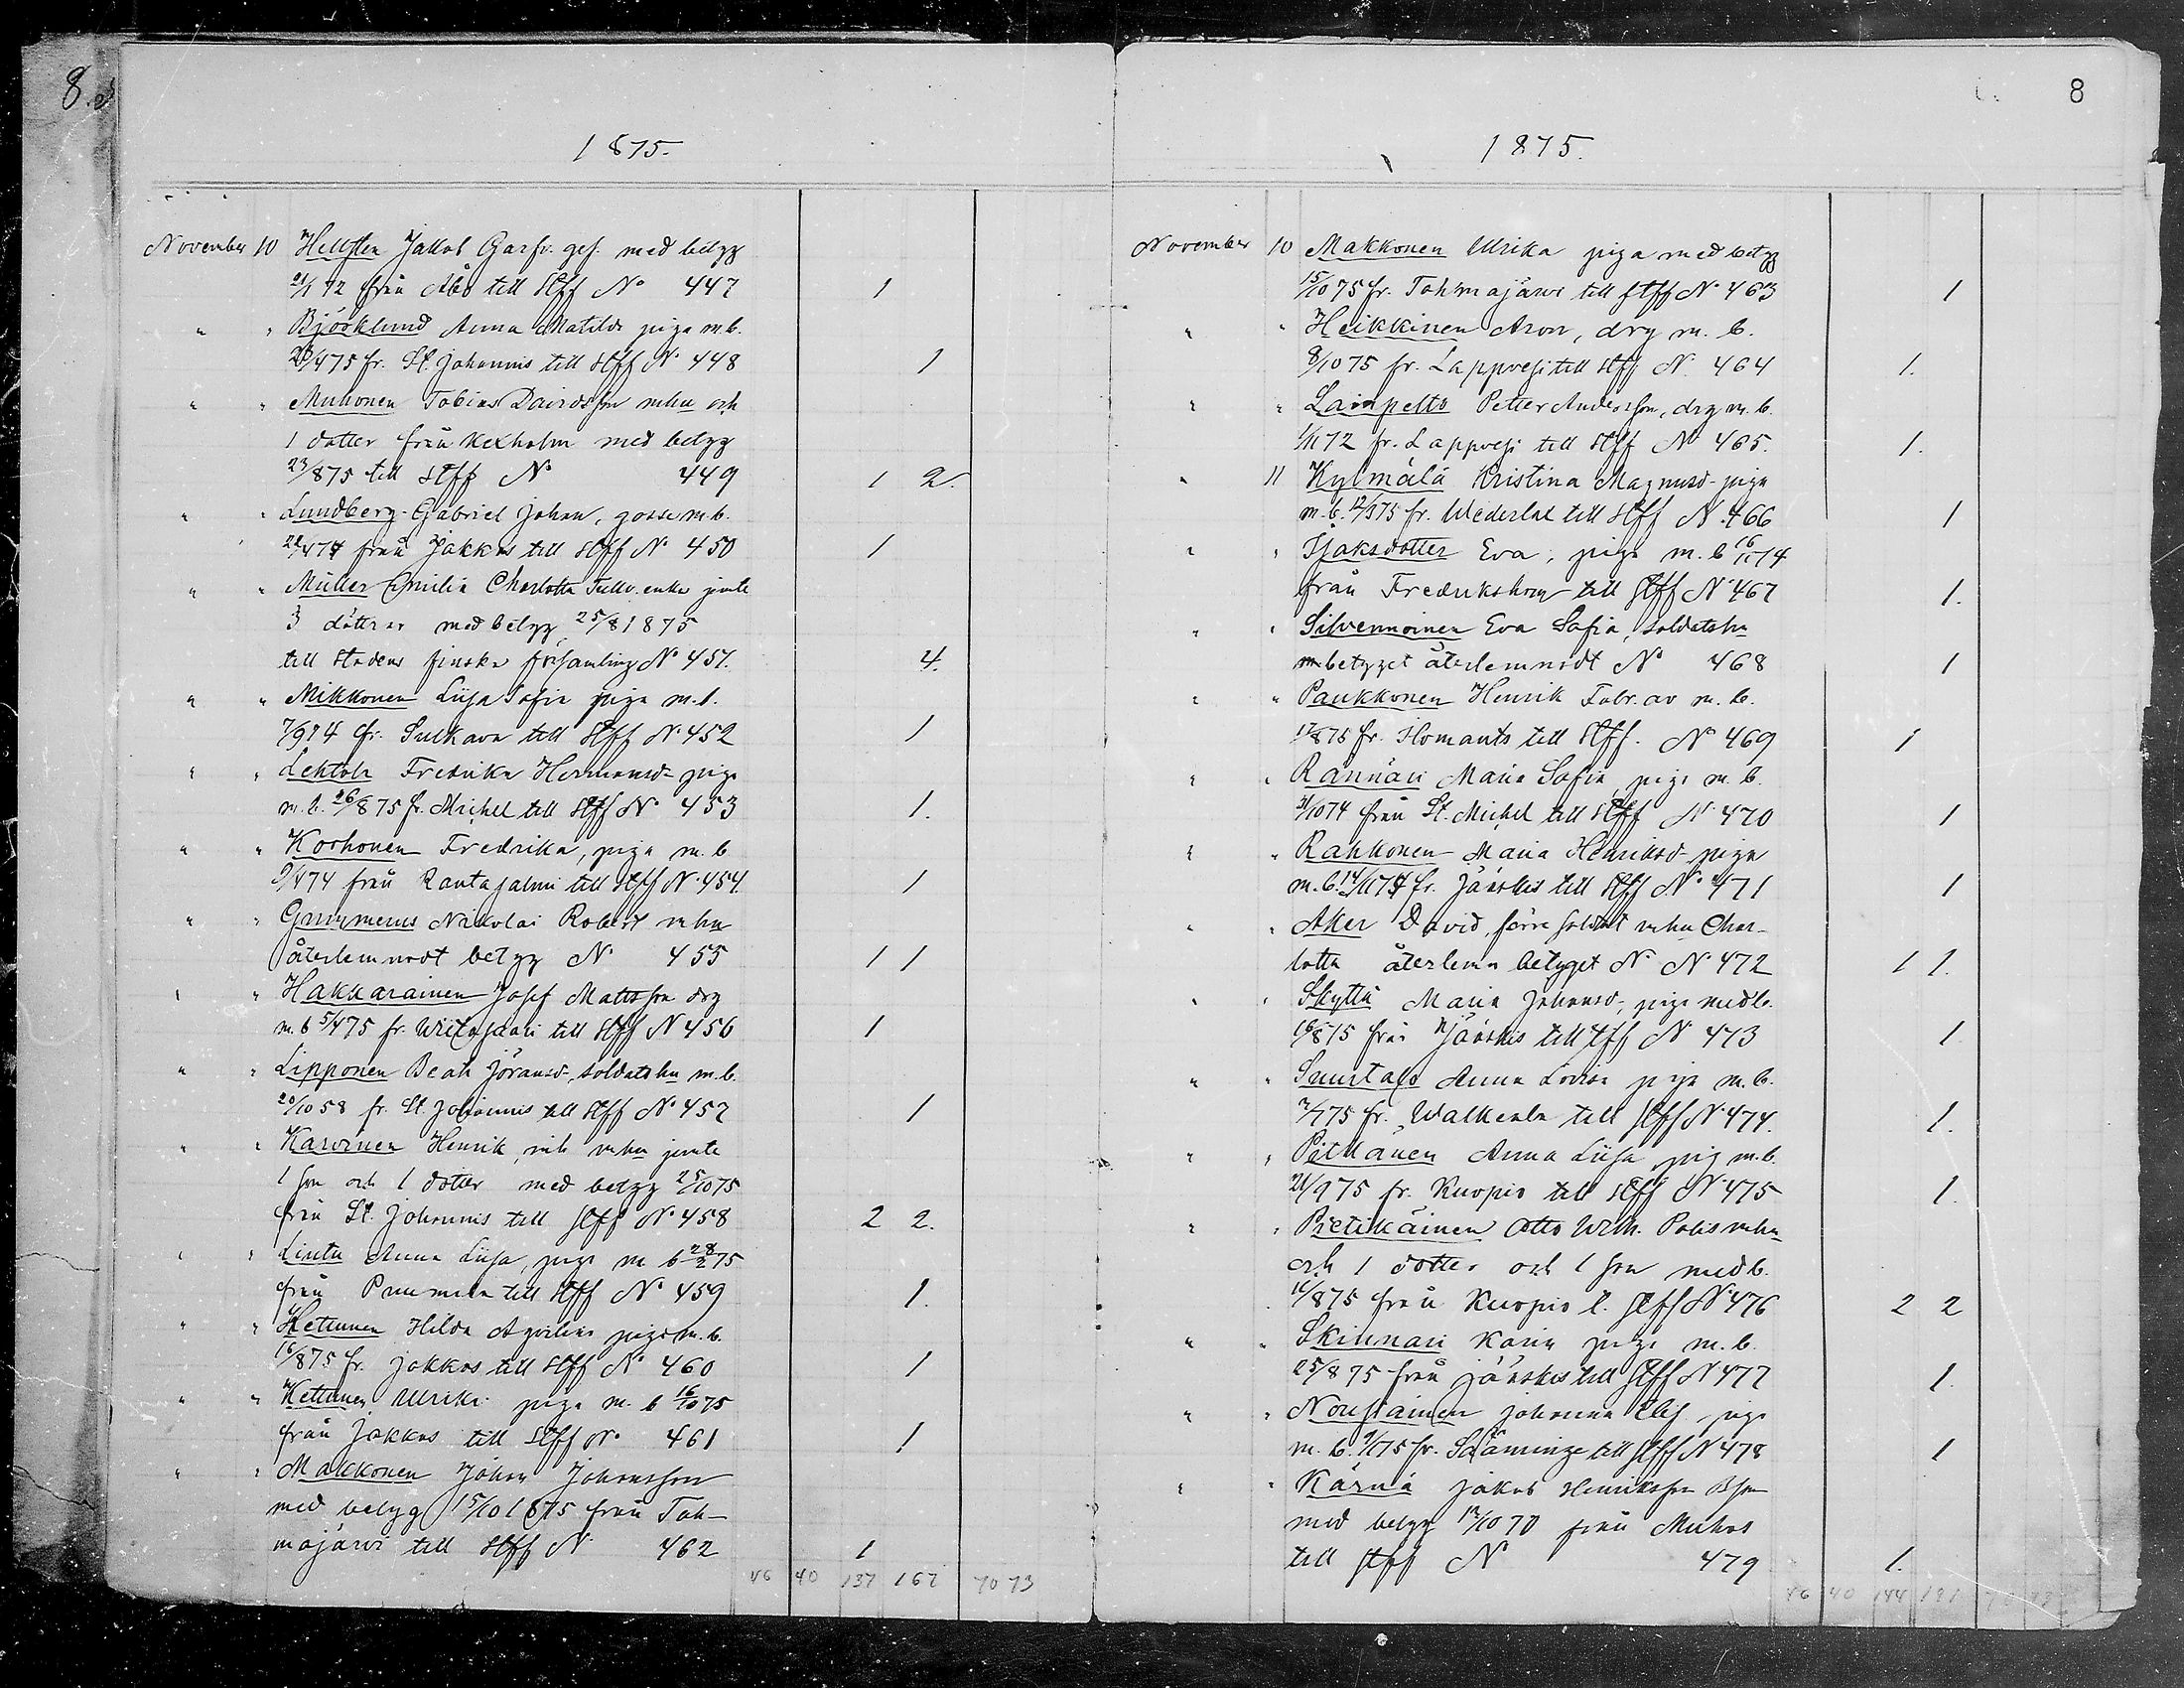 8.
1875.
November 10 Hellsten Jakob Garfv. ges. med betyg
21/1 72 från Åbo till Stff No 447 1
" " Björklund Anna Matilda piga m.b.
/4 75 fr. St. Johannis till Stff No 448 1
" " Muhonen Tobias Davidsson m hu och
1 dotter från Kexholm med betyg
23/8 75 till Stff No 449 1 2.
" " Lundberg Gabriel Johan, gosse m.b.
22/4 74 från Jakkas till Stff No 450 1
" " Müller Emilia Charlotta Tullv. enka jemte
3 döttrar med betyg 25/8 1875
till stadens finska församling No 451. 4.
" " Mikkonen Liisa Sofia piga m.b.
7/9 74 fr. Sulkava till Stff No 452 1
" " Lehtola Fredrika Hermansd- piga
m.b. 26/8 75 fr. Michel till Stff No 453 1.
" " Korhonen Fredrika, piga m.b
9/4 74 från Rantasalmi till Stff No 454. 1
" " Grummerus Nikolai Robert m hu
återlemnadt betyg No 455 1 1
" " Hakkarainen Josef Mattsson drg
m.b 5/4 75 fr. Wiitasaari till Stff No 456 1
" " Lipponen Beata Göransd-, soldats hu m.b.
20/10 58 fr. St. Johannis till Stff No 457 1
" " Karvinen Henrik, inh m hu jemte
1 son och 1 dotter med betyg 25/10 75
från St. Johannis till Stff No 458 2 2.
" " Lintu Anna Liisa, piga m b 28/2 75
från Puumala till Stff No 459 1.
" " Kettunen Hilda Aqvilina piga m.b.
16/8 75 fr. Jakkas till Stff No 460 1
" " Kettunen Ulrika piga m. b 16/10 75
från Jakkas till Stff No 461 1
" " Makkonen Johan Johansson
med betyg 15/10 1875 från Toh-
majärvi till Stff No 462 1
46 40 137 167 70 73
8
1875.
November 10 Makkonen Ulrika piga med betyg
15/10 75 fr. Tohmajärvi till Stff No 463 1
" " Heikkinen Aron, drg m. b.
8/10 75 fr. Lappvesi till Stff No 464 1.
" " Lampelto Petter Andersson, drg m. b.
1/11 72 fr. Lappvesi till Stff No 465. 1.
" 11 Kylmälä Kristina Magnusd- piga
m.b. 12/9 75 fr. Wederlax till Stff No 466 1
" " Isaksdotter Eva, piga m. b 16/11 74
från Fredrikshamn till Stff No 467 1.
" " Silvennoinen Eva Sofia, soldatshu
betyget återlemnadt No 468 1
" " Paukkonen Henrik Fabr. ar m. b.
17/8 75 fr. Ilomants till Stff. No 469 1
" " Rännäri Maria Sofia, piga m. b.
31/10 74 från St. Michel till Stff No 470 1
" " Rahkonen Maria Henriksd- piga
m.b. 14/11 74 fr. Jääskis till Stff No 471 1
" " Aker David, förre soldat m hu Char-
lotta återlemn betyget No No 472 1 1.
" " Skyttä Maria Johansd-, piga med b.
16/8 75 från Jääskis till Stff No 473 1
" " Suurtalo Anna Lovisa piga m. b.
7/7 75 fr. Walkeala till Stff No 474. 1.
" " Pitkänen Anna Liisa pig m.b.
21/9 75 fr. Kuopio till Stff No 475 1.
" " Pietikäinen Otto Wilh. Polis m hu
och 1 dotter och 1 son med b.
16/8 75 från Kuopio t. Stff No 476 2 2
" " Skinnari Karin piga m. b.
25/8 75 från Jääskis till Stff No 477 1.
" " Nousiainen Johanna Elis piga
m. b. 9/1 75 fr. Sääminge till Stff No 478 1
" " Kärnä Jakob Henriksson Bson
med betyg 12/10 70 från Muhos
till Stff No 479 1.
46 40 144 181